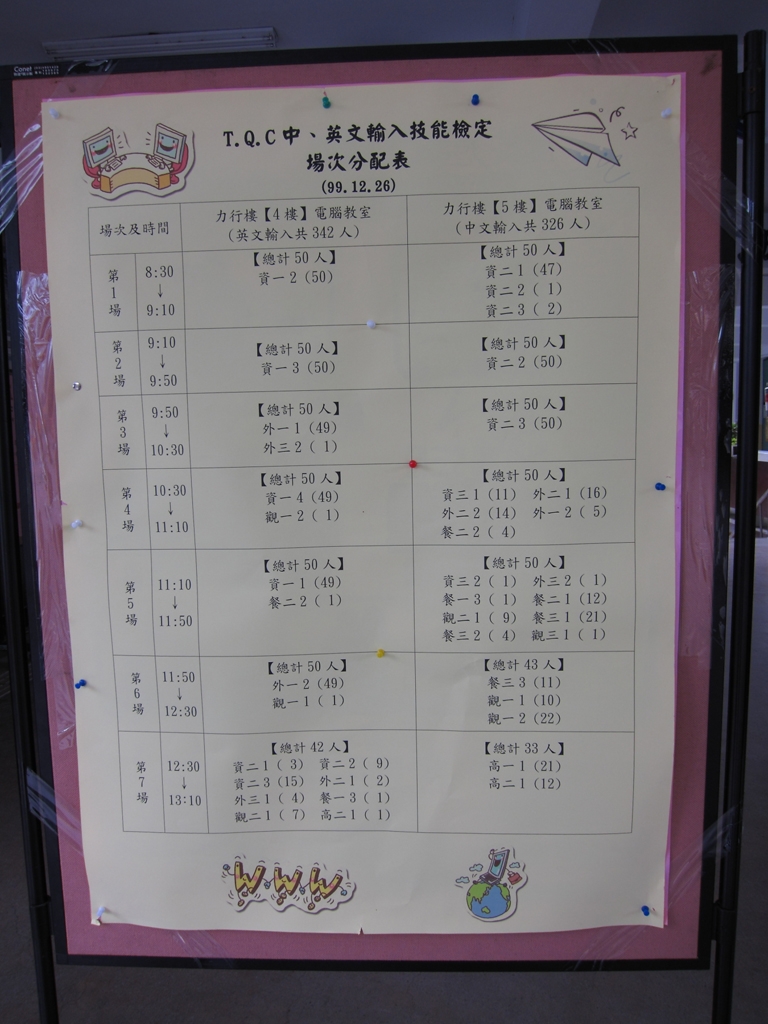 Conet
T.Q.C 中、英文輸入技能檢定
場次分配表
(99.12.26)
場次及時間
力行樓【4 樓】電腦教室
(英文輸入共 342 人)
力行樓【5 樓】電腦教室
(中文輸入共 326 人)
第1場
8:30
↓
9:10
【總計 50 人】
資一 2 (50)
【總計 50 人】
資二 1 (47)
資二 2 ( 1)
資二 3 ( 2)
第2場
9:10
↓
9:50
【總計 50 人】
資一 3 (50)
【總計 50 人】
資二 2 (50)
第3場
9:50
↓
10:30
【總計 50 人】
外一 1 (49)
外三 2 ( 1)
【總計 50 人】
資二 3 (50)
第4場
10:30
↓
11:10
【總計 50 人】
資一 4 (49)
觀一 2 ( 1)
【總計 50 人】
資三 1 (11) 外二 1 (16)
外二 2 (14) 外一 2 ( 5)
餐二 2 ( 4)
第5場
11:10
↓
11:50
【總計 50 人】
資一 1 (49)
餐二 2 ( 1)
【總計 50 人】
資三 2 ( 1) 外三 2 ( 1)
餐一 3 ( 1) 餐二 1 (12)
觀二 1 ( 9) 餐三 1 (21)
餐三 2 ( 4) 觀三 1 ( 1)
第6場
11:50
↓
12:30
【總計 50 人】
外一 2 (49)
觀一 1 ( 1)
【總計 43 人】
餐三 3 (11)
觀一 1 (10)
觀一 2 (22)
第7場
12:30
↓
13:10
【總計 42 人】
資二 1 ( 3) 資二 2 ( 9)
資二 3 (15) 外二 1 ( 2)
外三 1 ( 4) 餐一 3 ( 1)
觀二 1 ( 7) 高二 1 ( 1)
【總計 33 人】
高一 1 (21)
高二 1 (12)
W.W.W